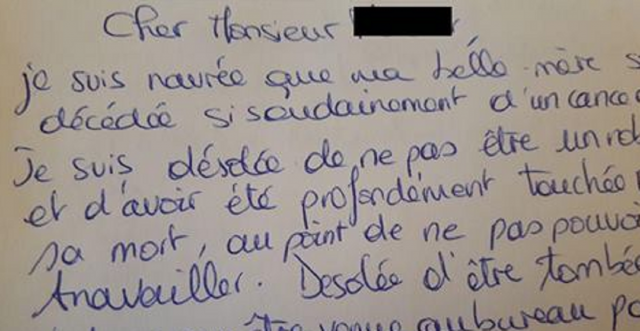 Cher Monsieur
je suis navrée que ma belle-mère s
décédée si soudainement d'un cance
Je suis désolée de ne pas être un ro
et d'avoir été profondément touchée
sa mort, au point de ne pas pouvoi
travailler. Desolée d'être tombée
être venue au bureau po